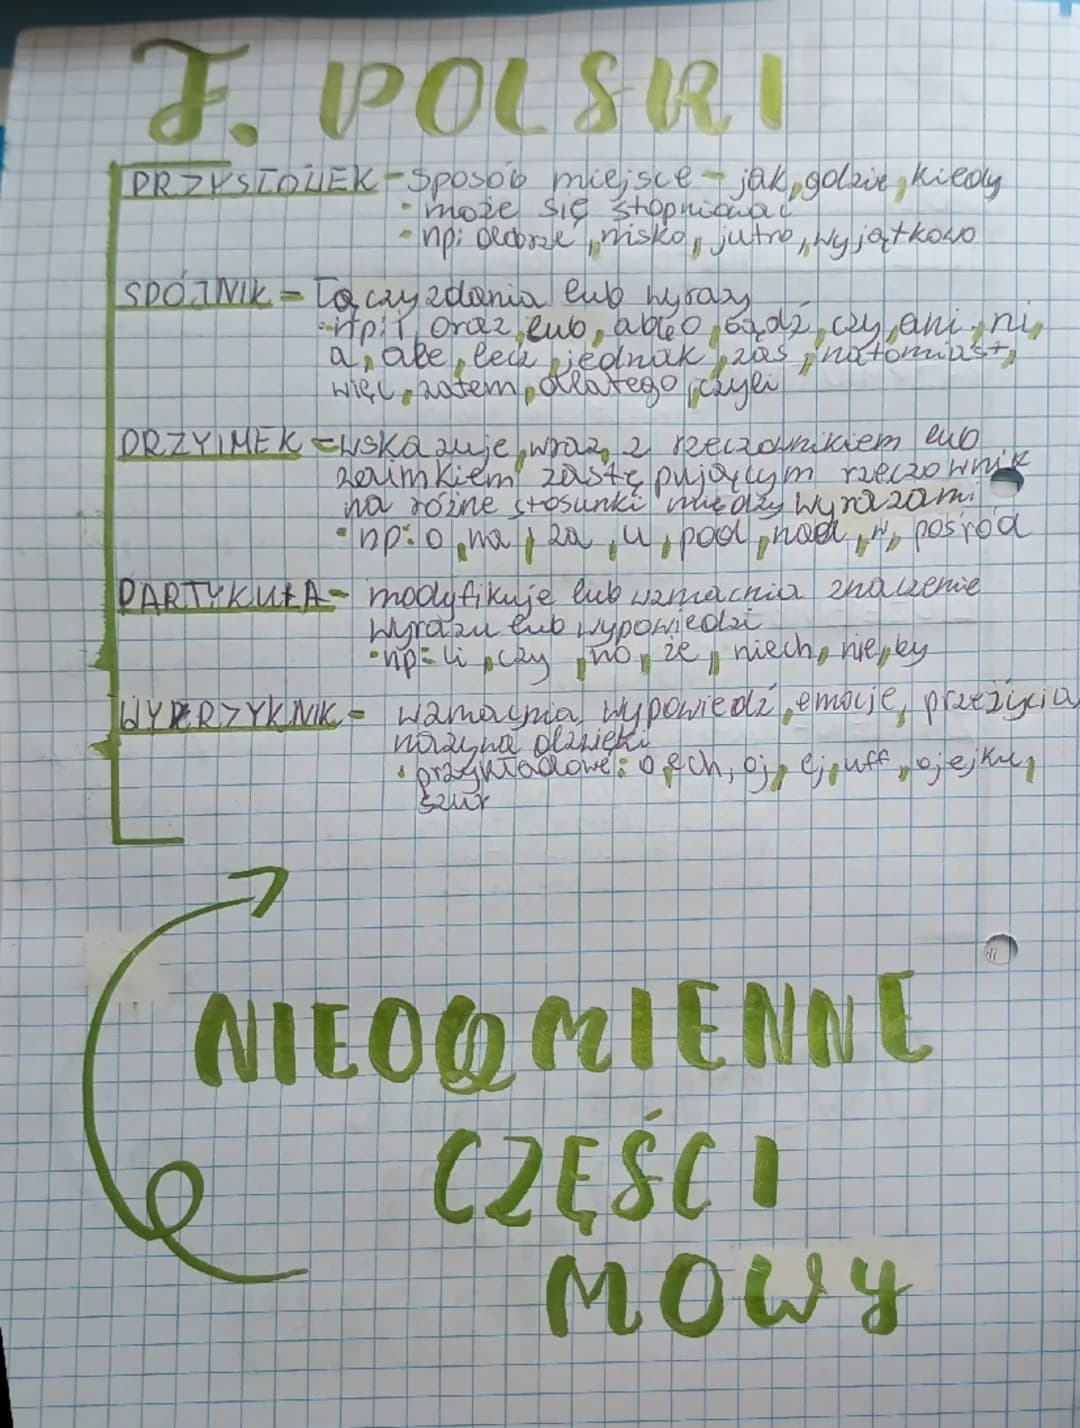 J. POLSKI
PRZYSŁÓWEK - sposób miejsce - jak, gdzie, kiedy
• może się stopniować
• np: dobrze, nisko, jutro, wyjątkowo
SPÓJNIK - Łączy zdania lub wyrazy
• np: i, oraz, lub, albo, bądź, czy, ani, ni,
a, ale, lecz, jednak, zaś, natomiast,
więc, zatem, dlatego, czyli
PRZYIMEK - wskazuje, wraz z rzeczownikiem lub
zaimkiem zastępującym rzeczownik
na różne stosunki między wyrazami
• np: o, na, za, u, pod, nad, w, pośród
PARTYKUŁA - modyfikuje lub wzmacnia znaczenie
wyrazu lub wypowiedzi
• np: li, czy, no, że, niech, nie, by
WYKRZYKNIK - wzmacnia wypowiedź, emocje, przeżycia
nazywa dźwięki
• przykładowe: o, ech, oj, ej, uff, ojejku,
szur
NIEODMIENNE
CZĘŚCI
MOWY